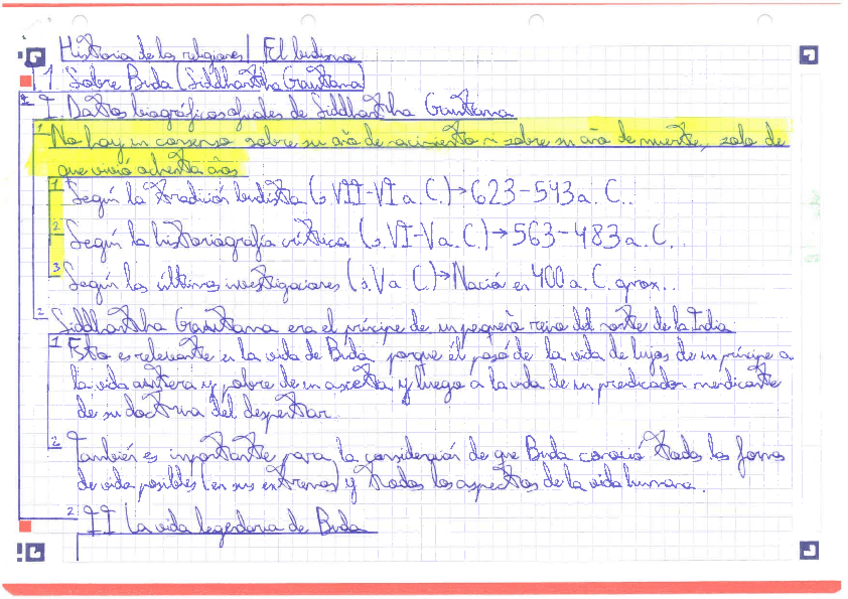 Historia de las religiones | El budismo
1. Sobre Buda (Siddhartha Gautama)
I. Datos biográficos oficiales de Siddhartha Gautama
1 No hay un consenso sobre su año de nacimiento ni sobre su año de muerte, solo de
que vivió ochenta años
1 Según la tradición budista (s. VII-VI a. C.)→623-543 a. C..
2 Según la historiografía crítica (s. VI-V a. C.)→563-483 a. C.
3 Según las últimas investigaciones (s. V a. C.)→Nació en 400 a. C. aprox..
2 Siddhartha Gautama era el príncipe de un pequeño reino del norte de la India
1 Esto es relevante en la vida de Buda porque él pasó de la vida de lujos de un príncipe a
la vida austera y pobre de un asceta, y luego a la vida de un predicador mendicante
de su doctrina del despertar.
2 También es importante para la consideración de que Buda conoció todas las formas
de vida posibles (en sus extremos) y todos los aspectos de la vida humana.
2 II La vida legendaria de Buda